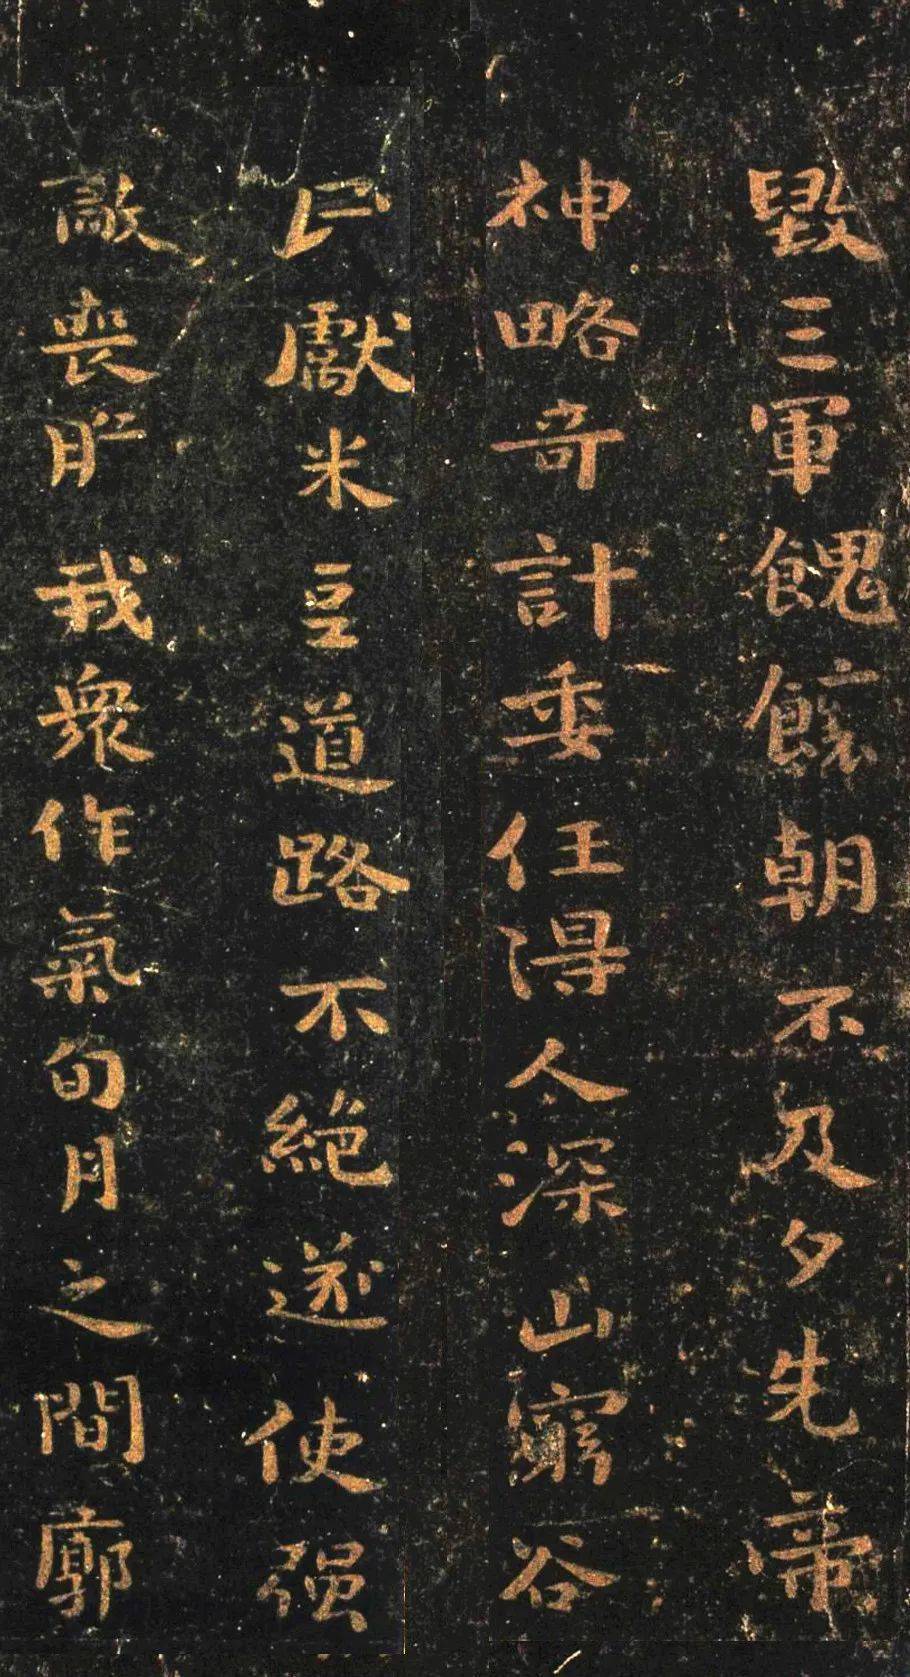 毀三軍餽饟朝不及夕先帝
神略奇計委任得人深山窮谷
民獻米豆道路不絶遂使强
敵喪膽我衆作氣旬月之間廓